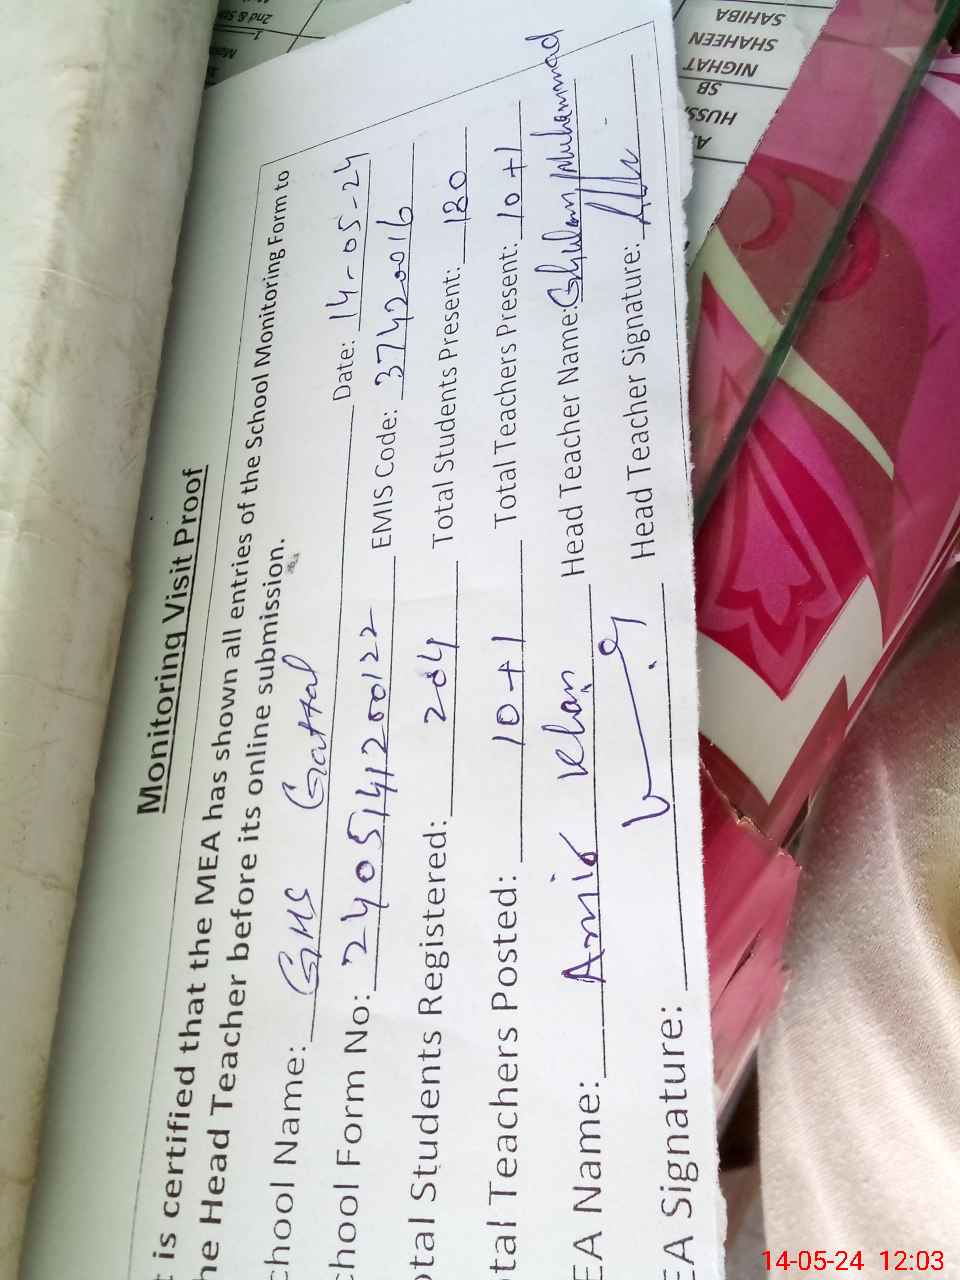 Monitoring Visit Proof
t is certified that the MEA has shown all entries of the School Monitoring Form to
he Head Teacher before its online submission.
chool Name: GHS Gattal Date: 14-05-24
chool Form No: 2405141200122 EMIS Code: 37420016
otal Students Registered: 204 Total Students Present: 180
otal Teachers Posted: 10+1 Total Teachers Present: 10+1
EA Name: Amir Khan Head Teacher Name: Ghulam Muhammad
EA Signature: Head Teacher Signature:
SAHIBA
SHAHEEN
NIGHAT
SB
HUSS
A.
2nd &
14-05-24 12:03